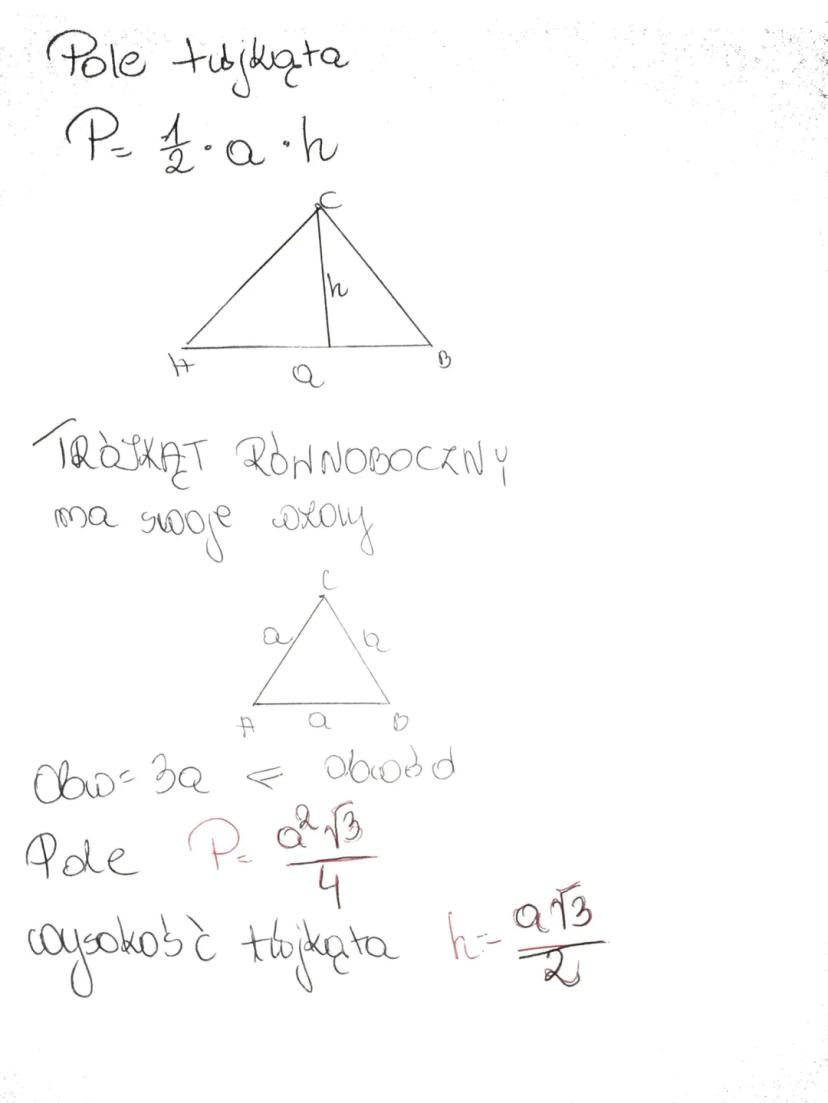 Pole trójkąta
P = 1/2 · a · h
C
h
A
a
B
TRÓJKĄT RÓWNOBOCZNY
ma swoje wzory
C
a
a
A
a
B
Obw = 3a ⇐ obwód
Pole P = a²√3/4
wysokość trójkąta h = a√3/2